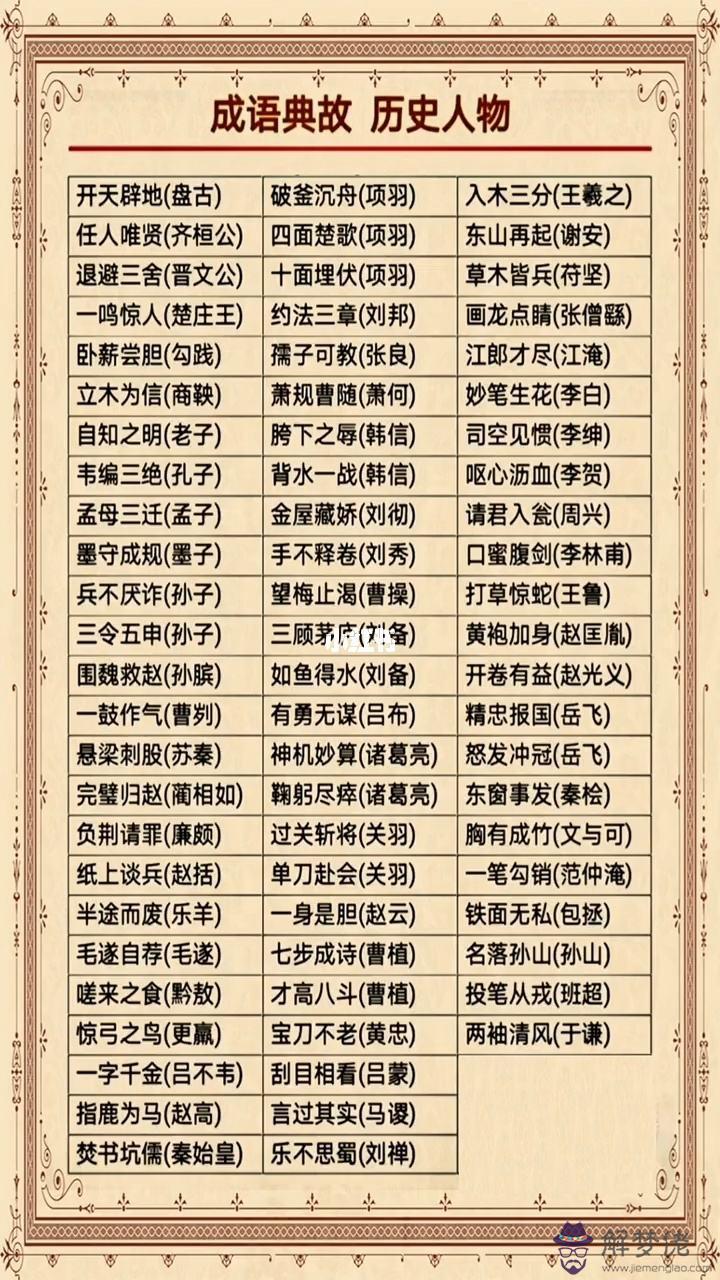 成语典故 历史人物
开天辟地(盘古) 破釜沉舟(项羽) 入木三分(王羲之)
任人唯贤(齐桓公) 四面楚歌(项羽) 东山再起(谢安)
退避三舍(晋文公) 十面埋伏(项羽) 草木皆兵(苻坚)
一鸣惊人(楚庄王) 约法三章(刘邦) 画龙点睛(张僧繇)
卧薪尝胆(勾践) 孺子可教(张良) 江郎才尽(江淹)
立木为信(商鞅) 萧规曹随(萧何) 妙笔生花(李白)
自知之明(老子) 胯下之辱(韩信) 司空见惯(李绅)
韦编三绝(孔子) 背水一战(韩信) 呕心沥血(李贺)
孟母三迁(孟子) 金屋藏娇(刘彻) 请君入瓮(周兴)
墨守成规(墨子) 手不释卷(刘秀) 口蜜腹剑(李林甫)
兵不厌诈(孙子) 望梅止渴(曹操) 打草惊蛇(王鲁)
三令五申(孙子) 三顾茅庐(刘备) 黄袍加身(赵匡胤)
围魏救赵(孙膑) 如鱼得水(刘备) 开卷有益(赵光义)
一鼓作气(曹刿) 有勇无谋(吕布) 精忠报国(岳飞)
悬梁刺股(苏秦) 神机妙算(诸葛亮) 怒发冲冠(岳飞)
完璧归赵(蔺相如) 鞠躬尽瘁(诸葛亮) 东窗事发(秦桧)
负荆请罪(廉颇) 过关斩将(关羽) 胸有成竹(文与可)
纸上谈兵(赵括) 单刀赴会(关羽) 一笔勾销(范仲淹)
半途而废(乐羊) 一身是胆(赵云) 铁面无私(包拯)
毛遂自荐(毛遂) 七步成诗(曹植) 名落孙山(孙山)
嗟来之食(黔敖) 才高八斗(曹植) 投笔从戎(班超)
惊弓之鸟(更羸) 宝刀不老(黄忠) 两袖清风(于谦)
一字千金(吕不韦) 刮目相看(吕蒙)
指鹿为马(赵高) 言过其实(马谡)
焚书坑儒(秦始皇) 乐不思蜀(刘禅)
小红书
解梦佬
www.jiemenglao.com